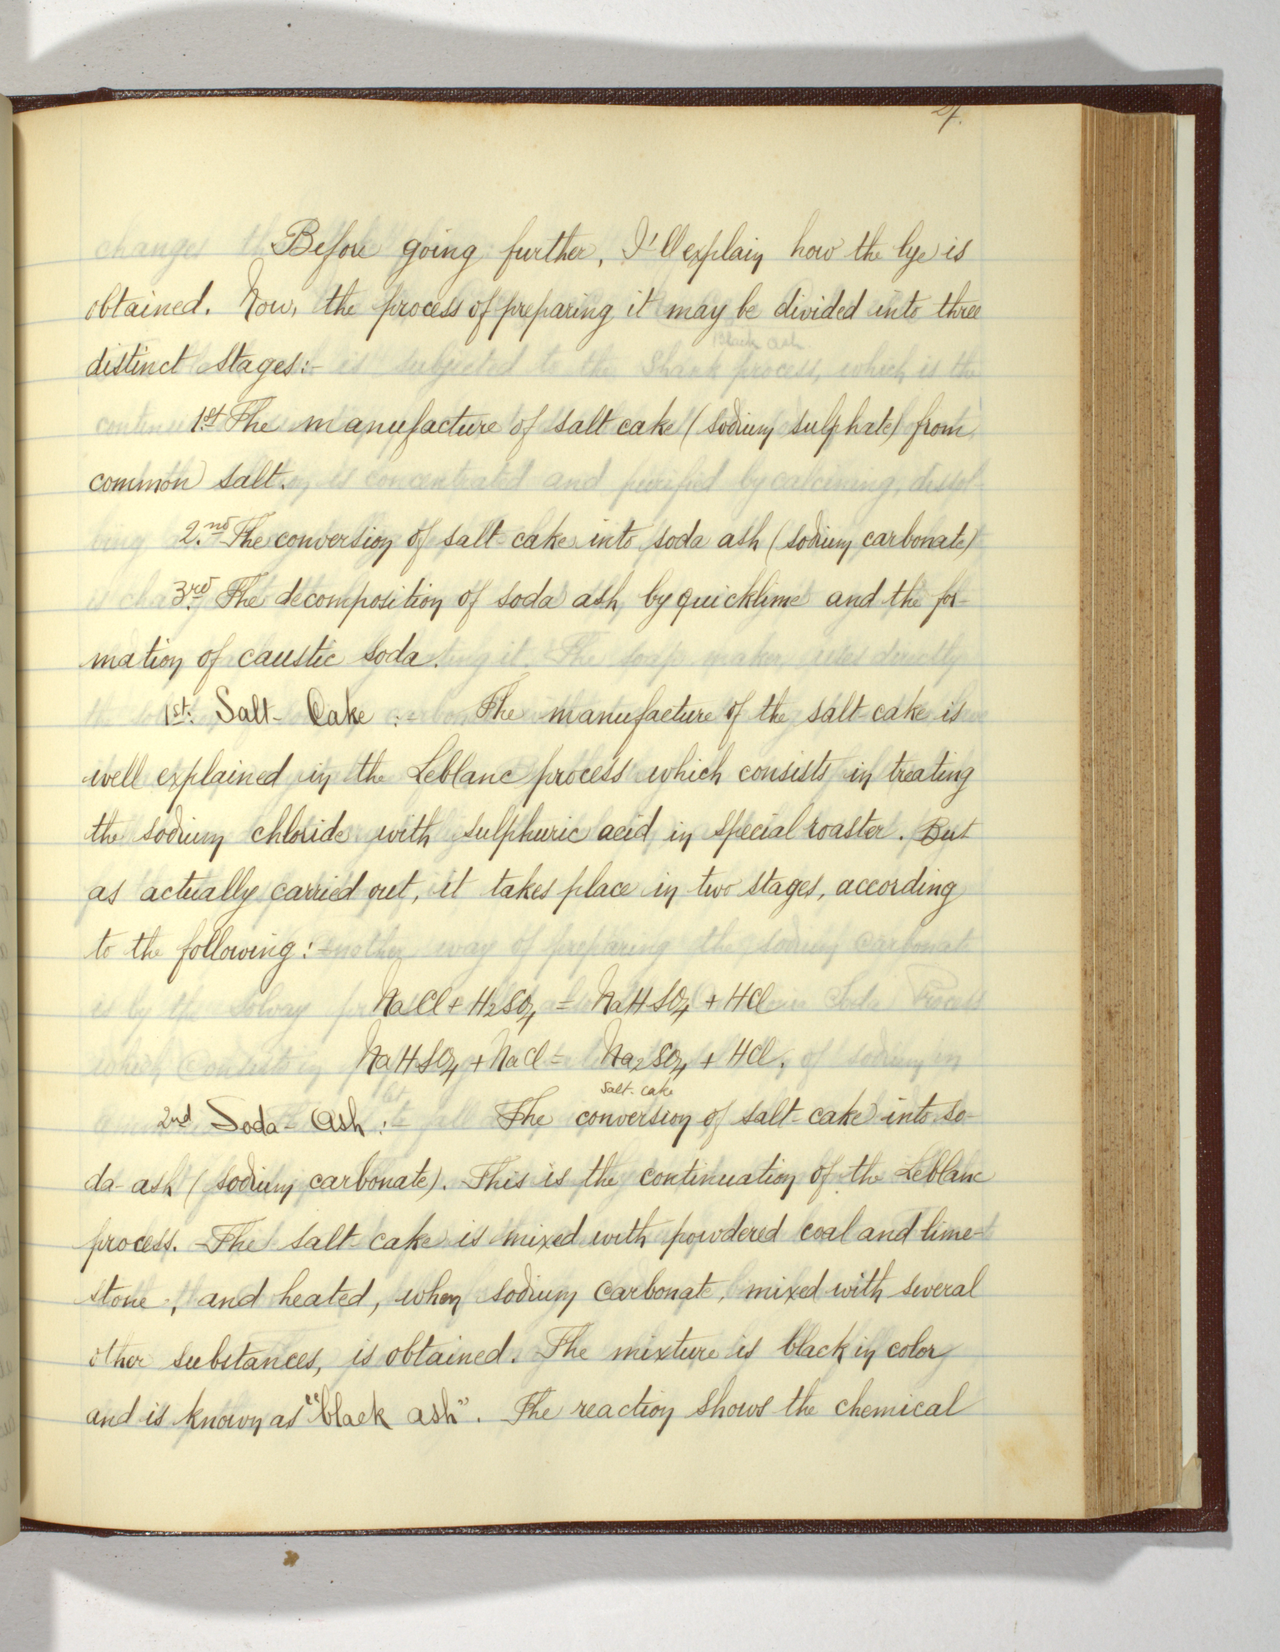 Before going further, I'll explain how the lye is
obtained. Now, the process of preparing it may be divided into three
distinct stages:-
1st. The manufacture of salt cake (sodium sulphate) from
common salt.
2.nd The conversion of salt cake into soda ash (sodium carbonate)
3rd. The decomposition of soda ash by quicklime and the for-
mation of caustic soda.
1st. Salt-Cake :- The manufacture of the salt-cake is
well explained in the Leblanc process which consists in treating
the sodium chloride with sulphuric acid in special roaster. But
as actually carried out, it takes place in two stages, according
to the following:-
NaCl + H2SO4 = NaHSO4 + HCl
NaHSO4 + NaCl = Na2SO4 + HCl.
Salt-cake
2nd Soda-Ash :- The conversion of salt-cake into so-
da-ash (sodium carbonate). This is the continuation of the Leblanc
process. The salt cake is mixed with powdered coal and lime-
stone, and heated, when sodium carbonate, mixed with several
other substances, is obtained. The mixture is black in color
and is known as "black ash". The reaction shows the chemical